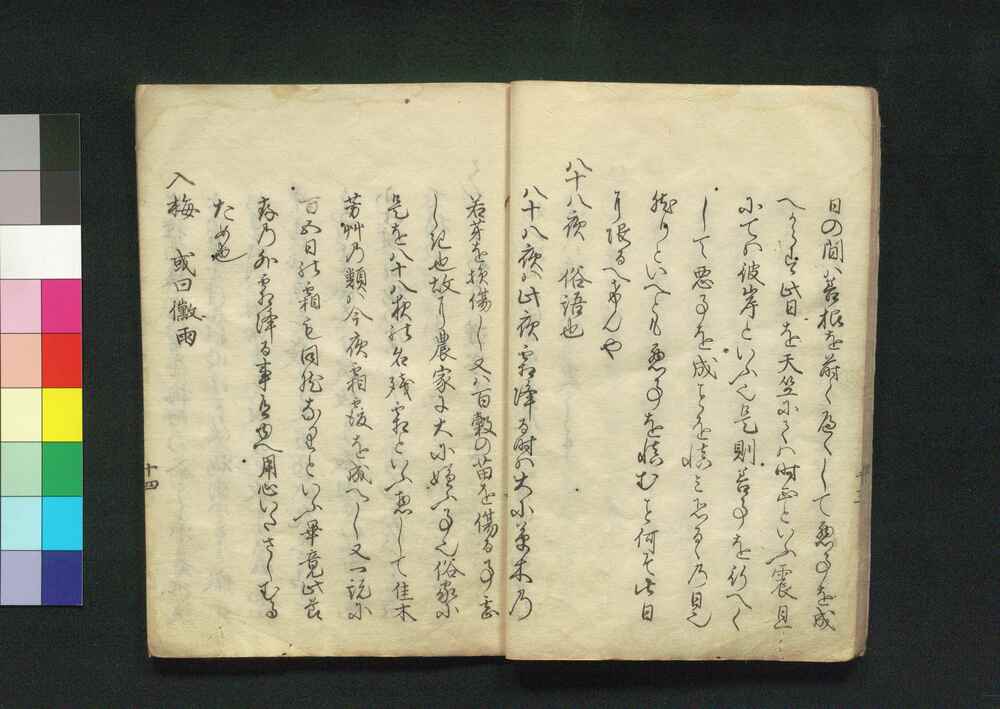 日の間ハ善根を萌くふくして悪事を成
へからす此日を天竺にてハ時正といふ震旦
にてハ彼岸といふ也是則善事を行へく
して悪事を成ことを慎ミ恐るゝの日也
然りといへとも悪事を慎むこと何そ此日
に限るへけんや
八十八夜 俗語也
八十八夜ハ此夜霜降る時ハ大小草木の
若芽を損傷し又ハ百穀の苗を傷る事甚
し記也故に農家に大に嫌ふ事也俗家に
是を八十八夜の名残霜といふ惣して佳木
芳艸の類ハ今夜霜覆を成へし又一説に
百五日の霜も同然なりといふ畢竟此節
存の外霜降る事有ゆへ用心いたさしむる
ため也
入梅 或曰黴雨
十四